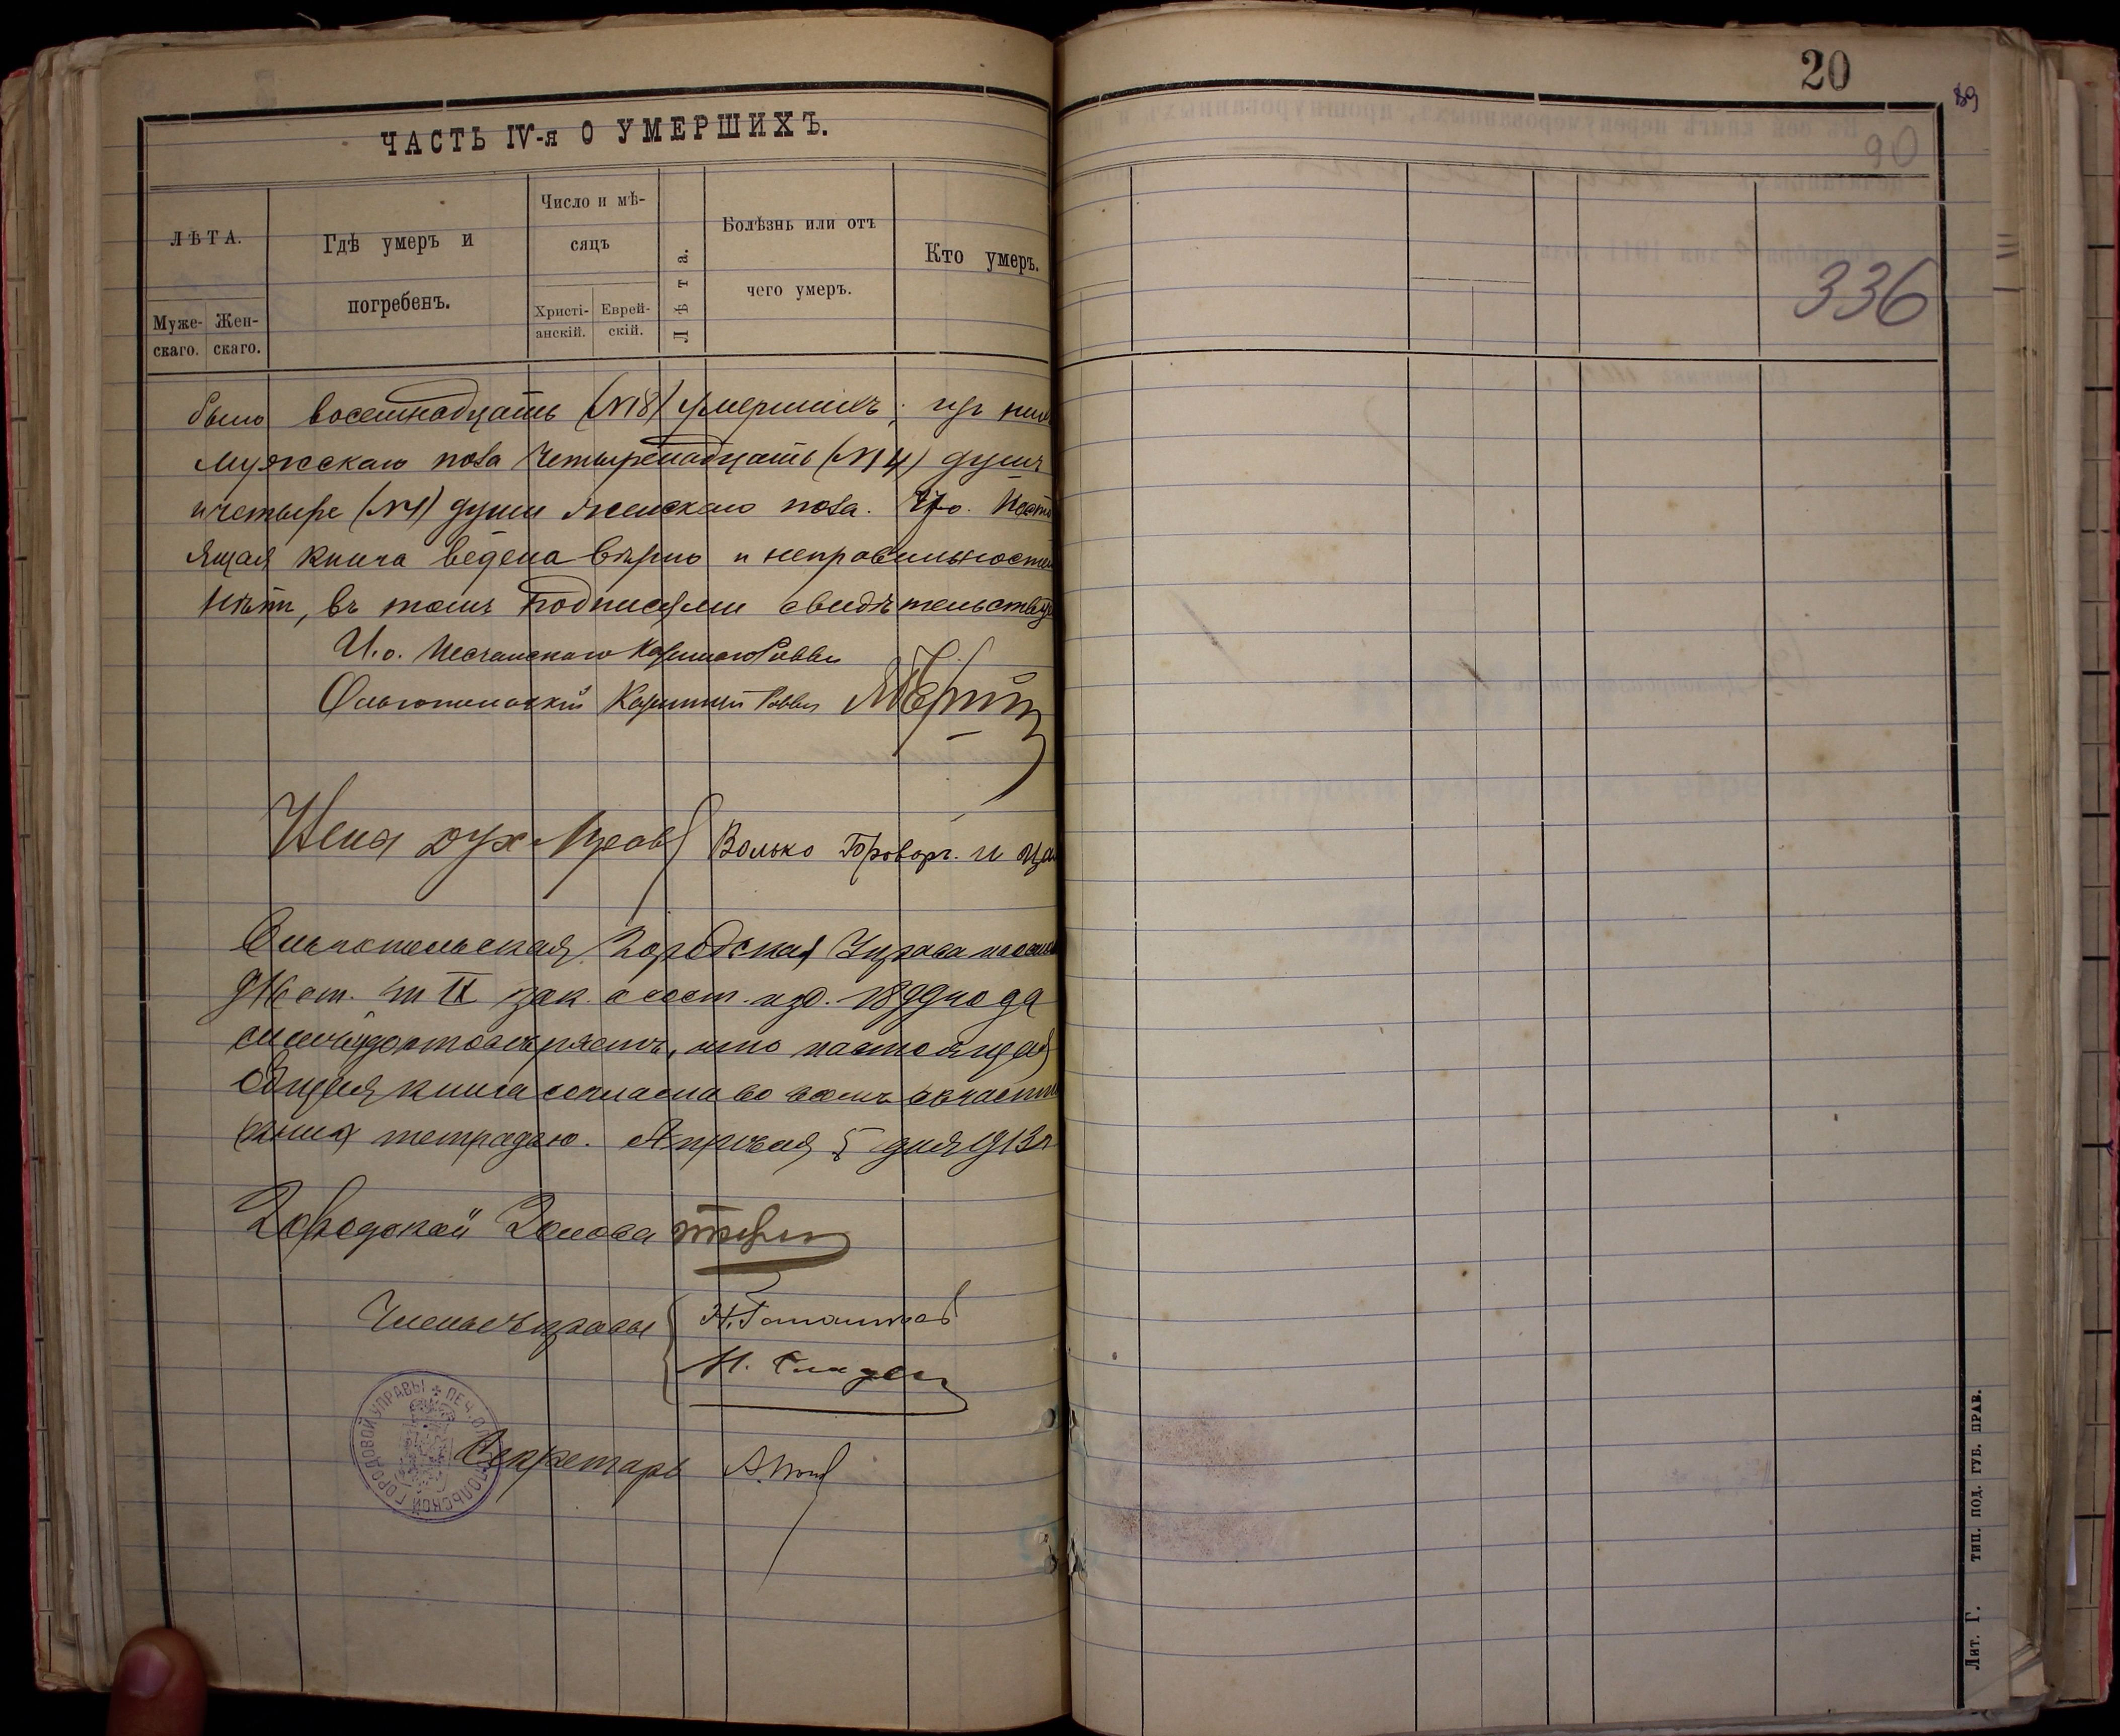 ЧАСТЬ IV-я О УМЕРШИХЪ.
ЛѢТА.
Муже-
скаго.
Жен-
скаго.
Гдѣ умеръ и
погребенъ.
Число и мѣ-
сяцъ
Христі-
анскій.
Еврей-
скій.
Лѣта.
Болѣзнь или отъ
чего умеръ.
Кто умеръ.
было восемнадцать (№18) умершихъ; изъ них
мужескаго пола четыренадцать (№14) душъ
и четыре (№4) души женскаго пола. Что Насто
ящая книга ведена вѣрно и неправильностей
нѣтъ, въ томъ подписями свидѣтельству
И. о. Песчанскаго Казеннаго Раввин
Ольгопольскій Казенный Раввин
Члея дух
Волько
и
Ольгопольская Городская Управа
916 ст. т IX зак. о сост. изд. 1899 года
симъ удостовѣряетъ, что настоящая
книга согласна во всемъ съ части
тетрадью. Апрѣля 5 дня 1913 г
Городской Голова
Члены управы
Н.
И.
Секретарь А.
ПЕЧ. ОЛЬГОПОЛЬСКОЙ ГОРОДОВОЙ УПРАВЫ
20
89
90
336
Лит. Г. ТИП. ПОД. ГУБ. ПРАВ.